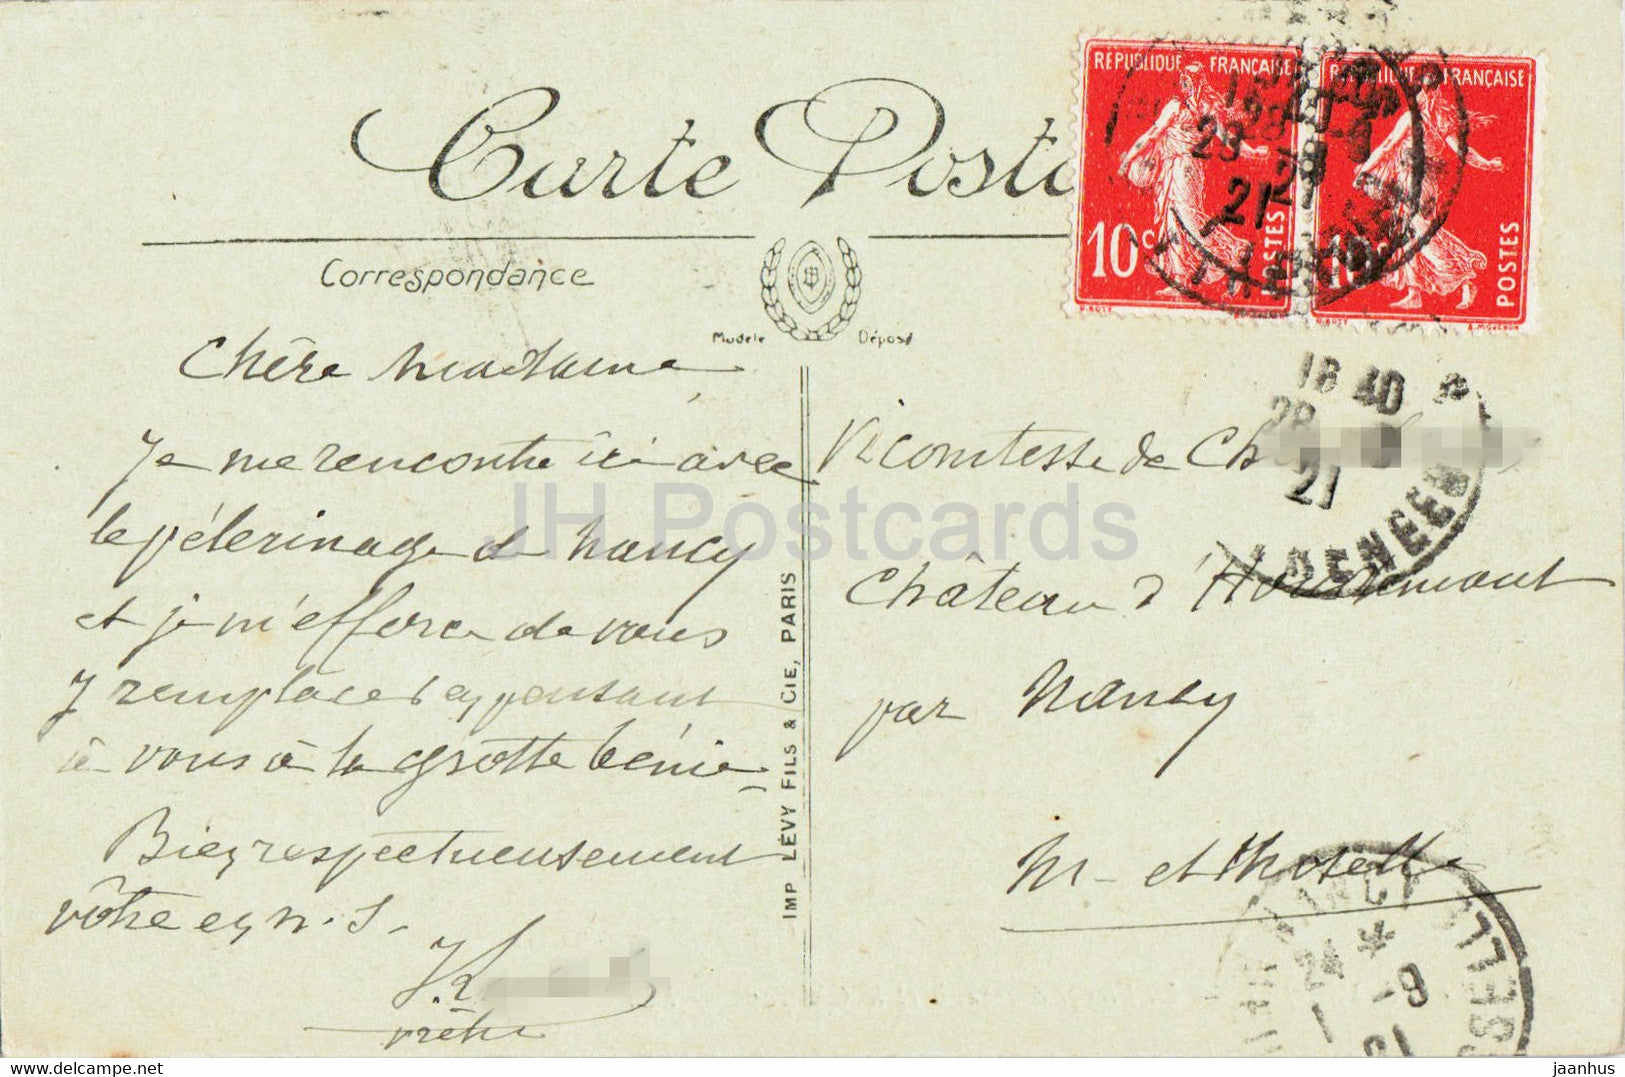 Carte Posta
RÉPUBLIQUE FRANÇAISE
10c POSTES
RÉPUBLIQUE FRANÇAISE
POSTES
Correspondance
Modèle Déposé
Chère Madame
Je me rencontre ici avec
le pélerinage de Nancy
et je m'efforce de vous
y remplacer en pensant
à vous à la grotte bénie
Bien respectueusement
vôtre en n. S.
prêtre
IMP LÉVY FILS & CIE, PARIS
Vicomtesse de Ch
Château d'
par Nancy
M- et Moselle
18 40
28
21
JH Postcards
www.delcampe.net
jaanhus